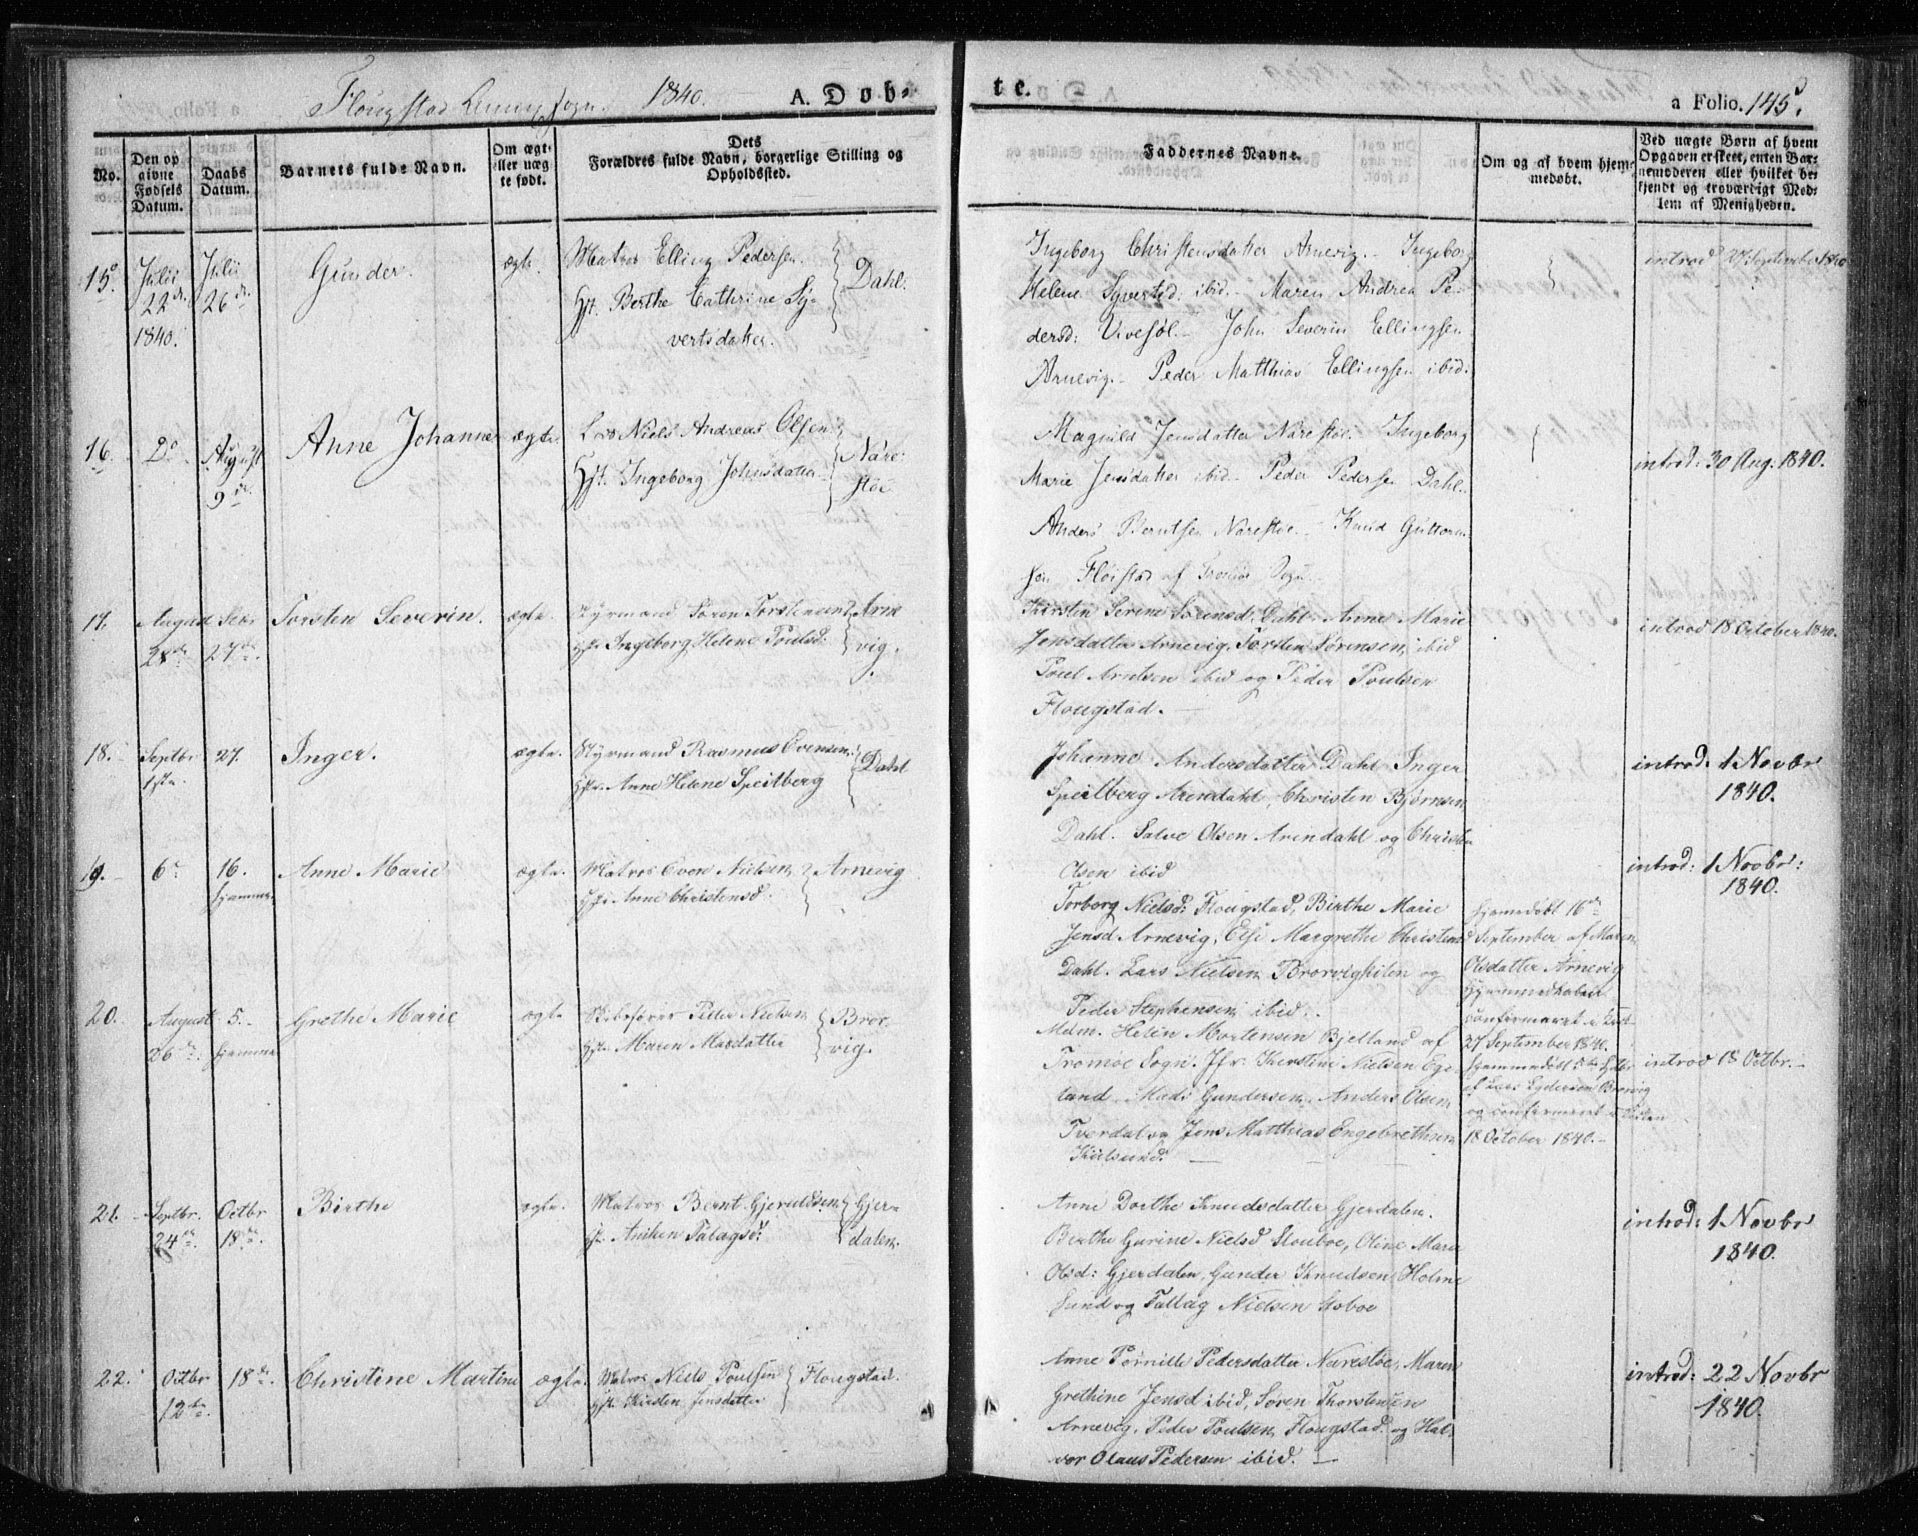 Flougstad Sogn 1840. A. Døb-
te.
a Folio. 145.
No.
Den opgivne Fødsels Datum.
Daabs Datum.
Barnets fulde Navn.
Om ægte eller uægte født.
Dets Forældres fulde Navn, borgerlige Stilling og Opholdssted.
Faddernes Navne.
Om og af hvem hjemmedøbt.
Ved uægte Børn af hvem Opgaven er skeet, enten Barnemoderen eller hvilket bekjendt og troværdigt Medlem af Menigheden.
15. Julii Julii Gunder. ægte. Matros Elling Pedersen Dahl.
22 d. 26 d. Hst. Berthe Cathrine Sy-
1840. vertsdatter.
Ingeborg Christensdatter Arnevig. Ingeborg
Helene Syverted. ibid. Maren Andrea Pe-
dersd: John Severin Ellingsen
Arnevig. Peder Matthias Ellingsen ibid.
introd 27 September 1840
16. Do August Anne Johanne ægte. Niels Andreas Olsen Nare-
9 de. Hst. Ingeborg Johnsdatter støe
Magnild Jensdatter Narestøe. Ingeborg
Marie Jensdatter ibid. Peder Pedersen Dahl.
Anders Berntsen Narestøe. Knud Guttorm
sen Fløistad af Tromøe Sogn.
introd: 30 Aug: 1840.
17. August Torsten Severin. ægte. Styrmand Søren Torstensen Arne
28de 27de. Hst. Ingeborg Helene Poulsd: vig.
Kirsten Serine Sørensd. Dahl. Anne Marie
Jensdatter Arnevig, Torsten Sørensen, ibid
Poul Arntsen ibid og Peder Poulsen
Flougstad.
introd 18 October 1840.
18. Septbr 27. Inger. ægte. Styrmand Rasmus Evensen Dahl
1ste Hst. Anne Helene Speilberg
Johanne Andersdatter Dahl. Inger
Speilberg Arendahl, Christen Bjørnsen
Dahl. Salve Olsen Arendahl og Christen
Olsen ibid
introd: 1 Novbr
1840.
19. 6 16. Anne Marie ægte. Matros Even Nielsen Arnevig
hjemme. Hst. Anne Christensd.
Torborg Nielsd: Flougstad, Birthe Marie
Jensd Arnevig, Else Margrethe Christensd
Dahl. Lars Nielsen, og
Peder Stephensen ibid.
hjemmedøbt 16 de
September af Maren
Olsdatter Arnevig
Hjemmedaaben
confirmeret
27 September 1840.
introd: 1 Novbr:
1840.
20. August 5. Grethe Marie ægte. Skibsfører Peder Nielsen Bror-
26 de. hjemme Hst. Maren Masdatter vig.
Mdm. Helen Mortensen Bjelland af
Tromøe Sogn. Jfr. Kirstine Nielsen Ege-
land. Mads Gundersen. Anders Olsen,
Tverdal og Jens Matthias Engebrethsen
Kilsund.
hjemmedøbt 5te
af Lars
og confirmeret
18 October 1840.
introd 18 Octbr.
21. Septbr. Octbr Birthe ægte. Matros Bernt Gjeruldsen Gjer-
24de. 18de. Hst. Aniken Talagsd: dalen
Anne Dorthe Knudsdatter Gjerdalen.
Birthe Gurine Nielsd Stouboe, Oline Marie
Olsd: Gjerdalen, Gunder Knudsen Holme
sund og Tallag Nielsen Stoboe
introd: 1 Novbr
1840.
22. Octbr 18de. Christine Martine ægte. Matros Niels Poulsen Flougstad.
12te. Hst. Kirsten Jensdatter
Anne Pernille Pedersdatter Narestøe, Maren
Grethine Jensd ibid, Søren Thorstensen
Arnevig, Peder Poulsen, Flougstad. og Hal-
vor Olaus Pedersen ibid.
introd: 22 Novbr
1840.